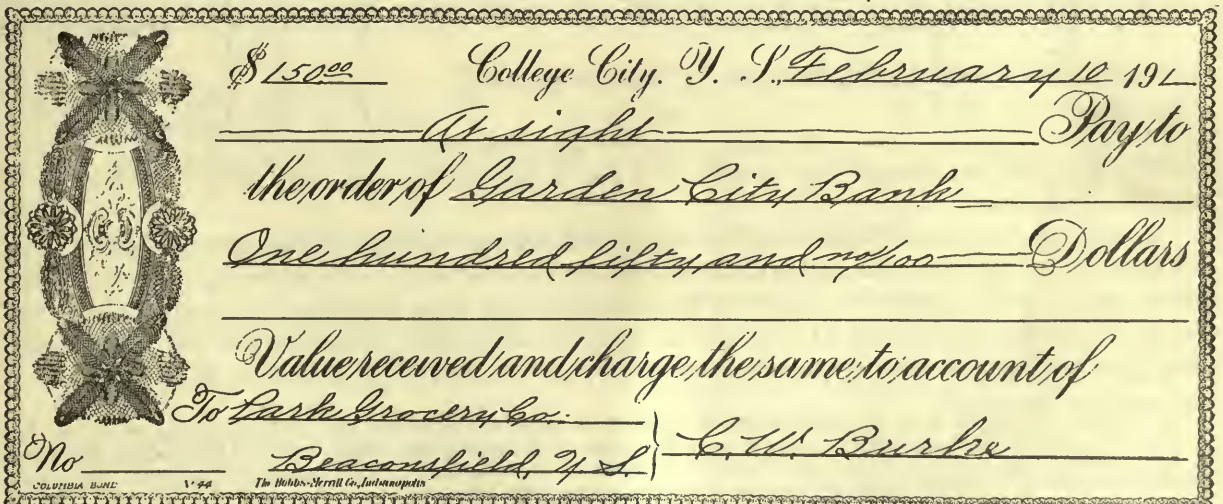 $ 150.00 College City. Y. S., February 10 191
At sight Pay to
the order of Garden City Bank
One hundred fifty and no/100 Dollars
Value received and charge the same to account of
To Lark Grocery Co.
Beaconsfield, Y S. C. W. Burke
No
COLUMBIA V 44 The Bobbs-Merrill Co., Indianapolis